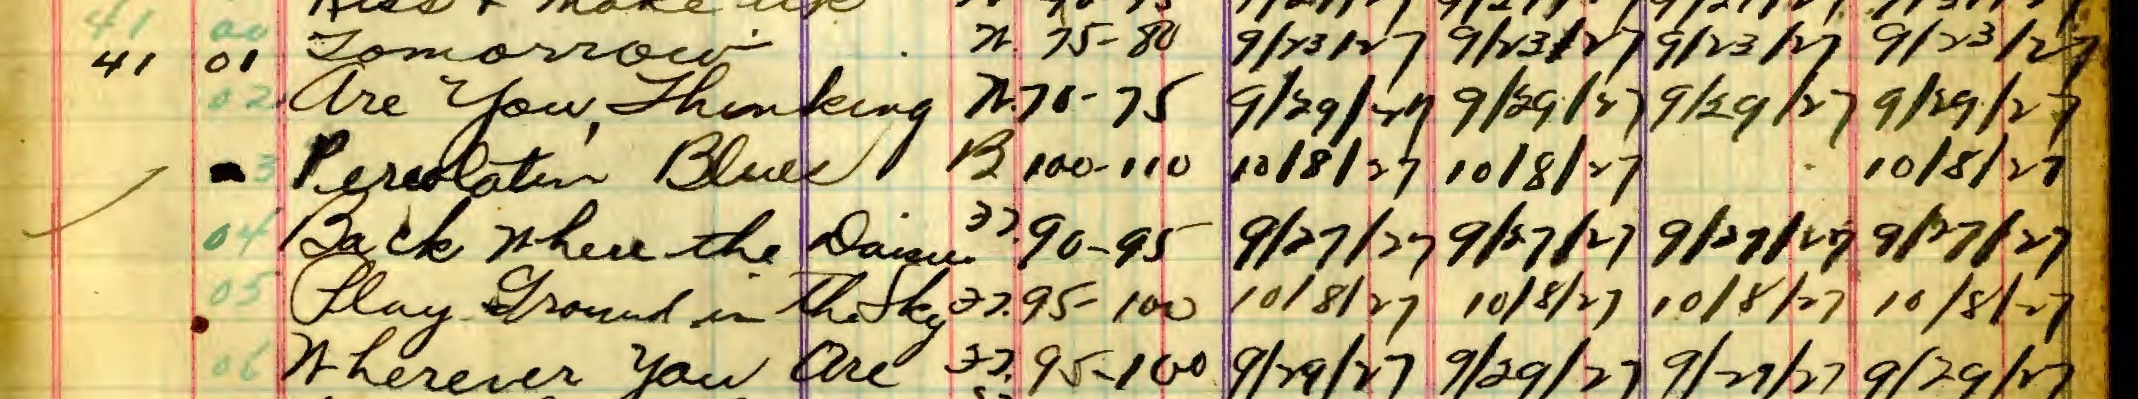 41 00 Kiss & Make Up
41 01 Tomorrow N. 75-80 9/23/27 9/23/27 9/23/27 9/23/27
02 Are You, Thinking N. 70-75 9/29/27 9/29/27 9/29/27 9/29/27
3 Percolatin Blues B 100-110 10/8/27 10/8/27 10/8/27
04 Back Where the Daisies 37. 90-95 9/27/27 9/27/27 9/27/27 9/27/27
05 Play Ground in the Sky 37. 95-100 10/8/27 10/8/27 10/8/27 10/8/27
06 Wherever You Are 37. 95-100 9/29/27 9/29/27 9/29/27 9/29/27